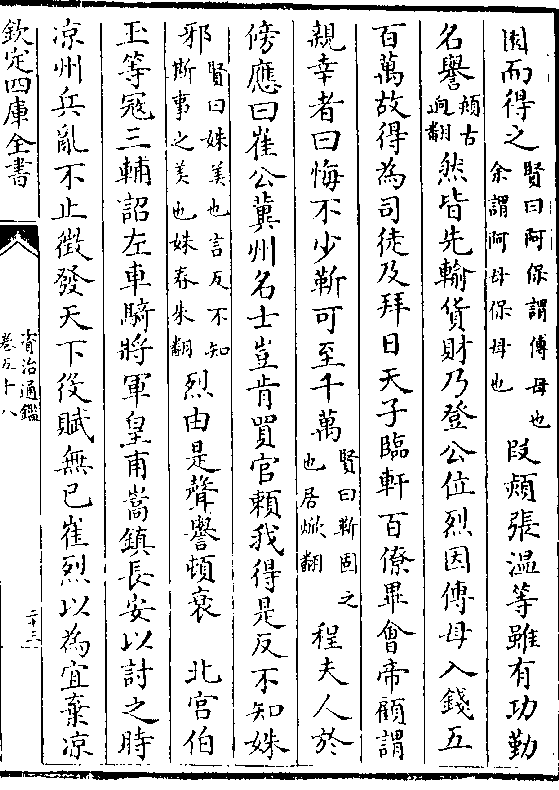 因而得之賢曰阿保謂傅母也余謂阿母保母也段熲張溫等雖有功勤
名譽熲古迥翻然皆先輸貨財乃登公位烈因傅母入錢五
百萬故得為司徒及拜日天子臨軒百僚畢會帝顧謂
親幸者曰悔不少靳可至千萬賢曰靳固之也居焮翻程夫人於
傍應曰崔公冀州名士豈肯買官賴我得是反不知姝
邪賢曰姝美也言反不知斯事之美也姝春朱翻烈由是聲譽頓衰 北宮伯
玉等寇三輔詔左車騎將軍皇甫嵩鎮長安以討之時
涼州兵亂不止徵發天下役賦無已崔烈以為宜棄涼
欽定四庫全書
資治通鑑
卷五十八
二十三